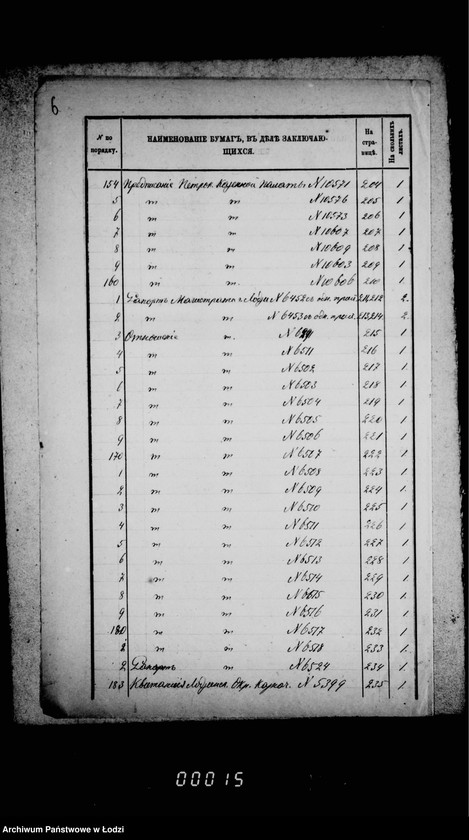 6
№ по порядку. НАИМЕНОВАНІЕ БУМАГЪ, ВЪ ДѢЛѢ ЗАКЛЮЧАЮ- ЩИХСЯ. На стра- ницѣ. На сколькихъ листахъ.
154 Предписаніе Петрок. Казенной Палаты N 10571 204 1
5 " " N 10576 205 1
6 " " N 10573 206 1
7 " " N 10607 207 1
8 " " N 10609 208 1
9 " " N 10603 209 1
160 " " N 10606 210 1
1 Рапортъ Магистрата г. Лодзи N 6452 съ 211,212 2
2 " " N 6453 съ 213,214 2
3 Отношеніе " 215 1
4 " " N 6511 216 1
5 " " N 6502 217 1
6 " " N 6503 218 1
7 " " N 6504 219 1
8 " " N 6505 220 1
9 " " N 6506 221 1
170 " " N 6507 222 1
1 " " N 6508 223 1
2 " " N 6509 224 1
3 " " N 6510 225 1
4 " " N 6511 226 1
5 " " N 6512 227 1
6 " " N 6513 228 1
7 " " N 6514 229 1
8 " " 230 1
9 " " N 6516 231 1
180 " " N 6517 232 1
" " N 6518 233 1
2 Рапортъ " N 6524 234 1
183 Квитанція Окр. Казнач. N 5399 235 1
00015
Archiwum Państwowe w Łodzi